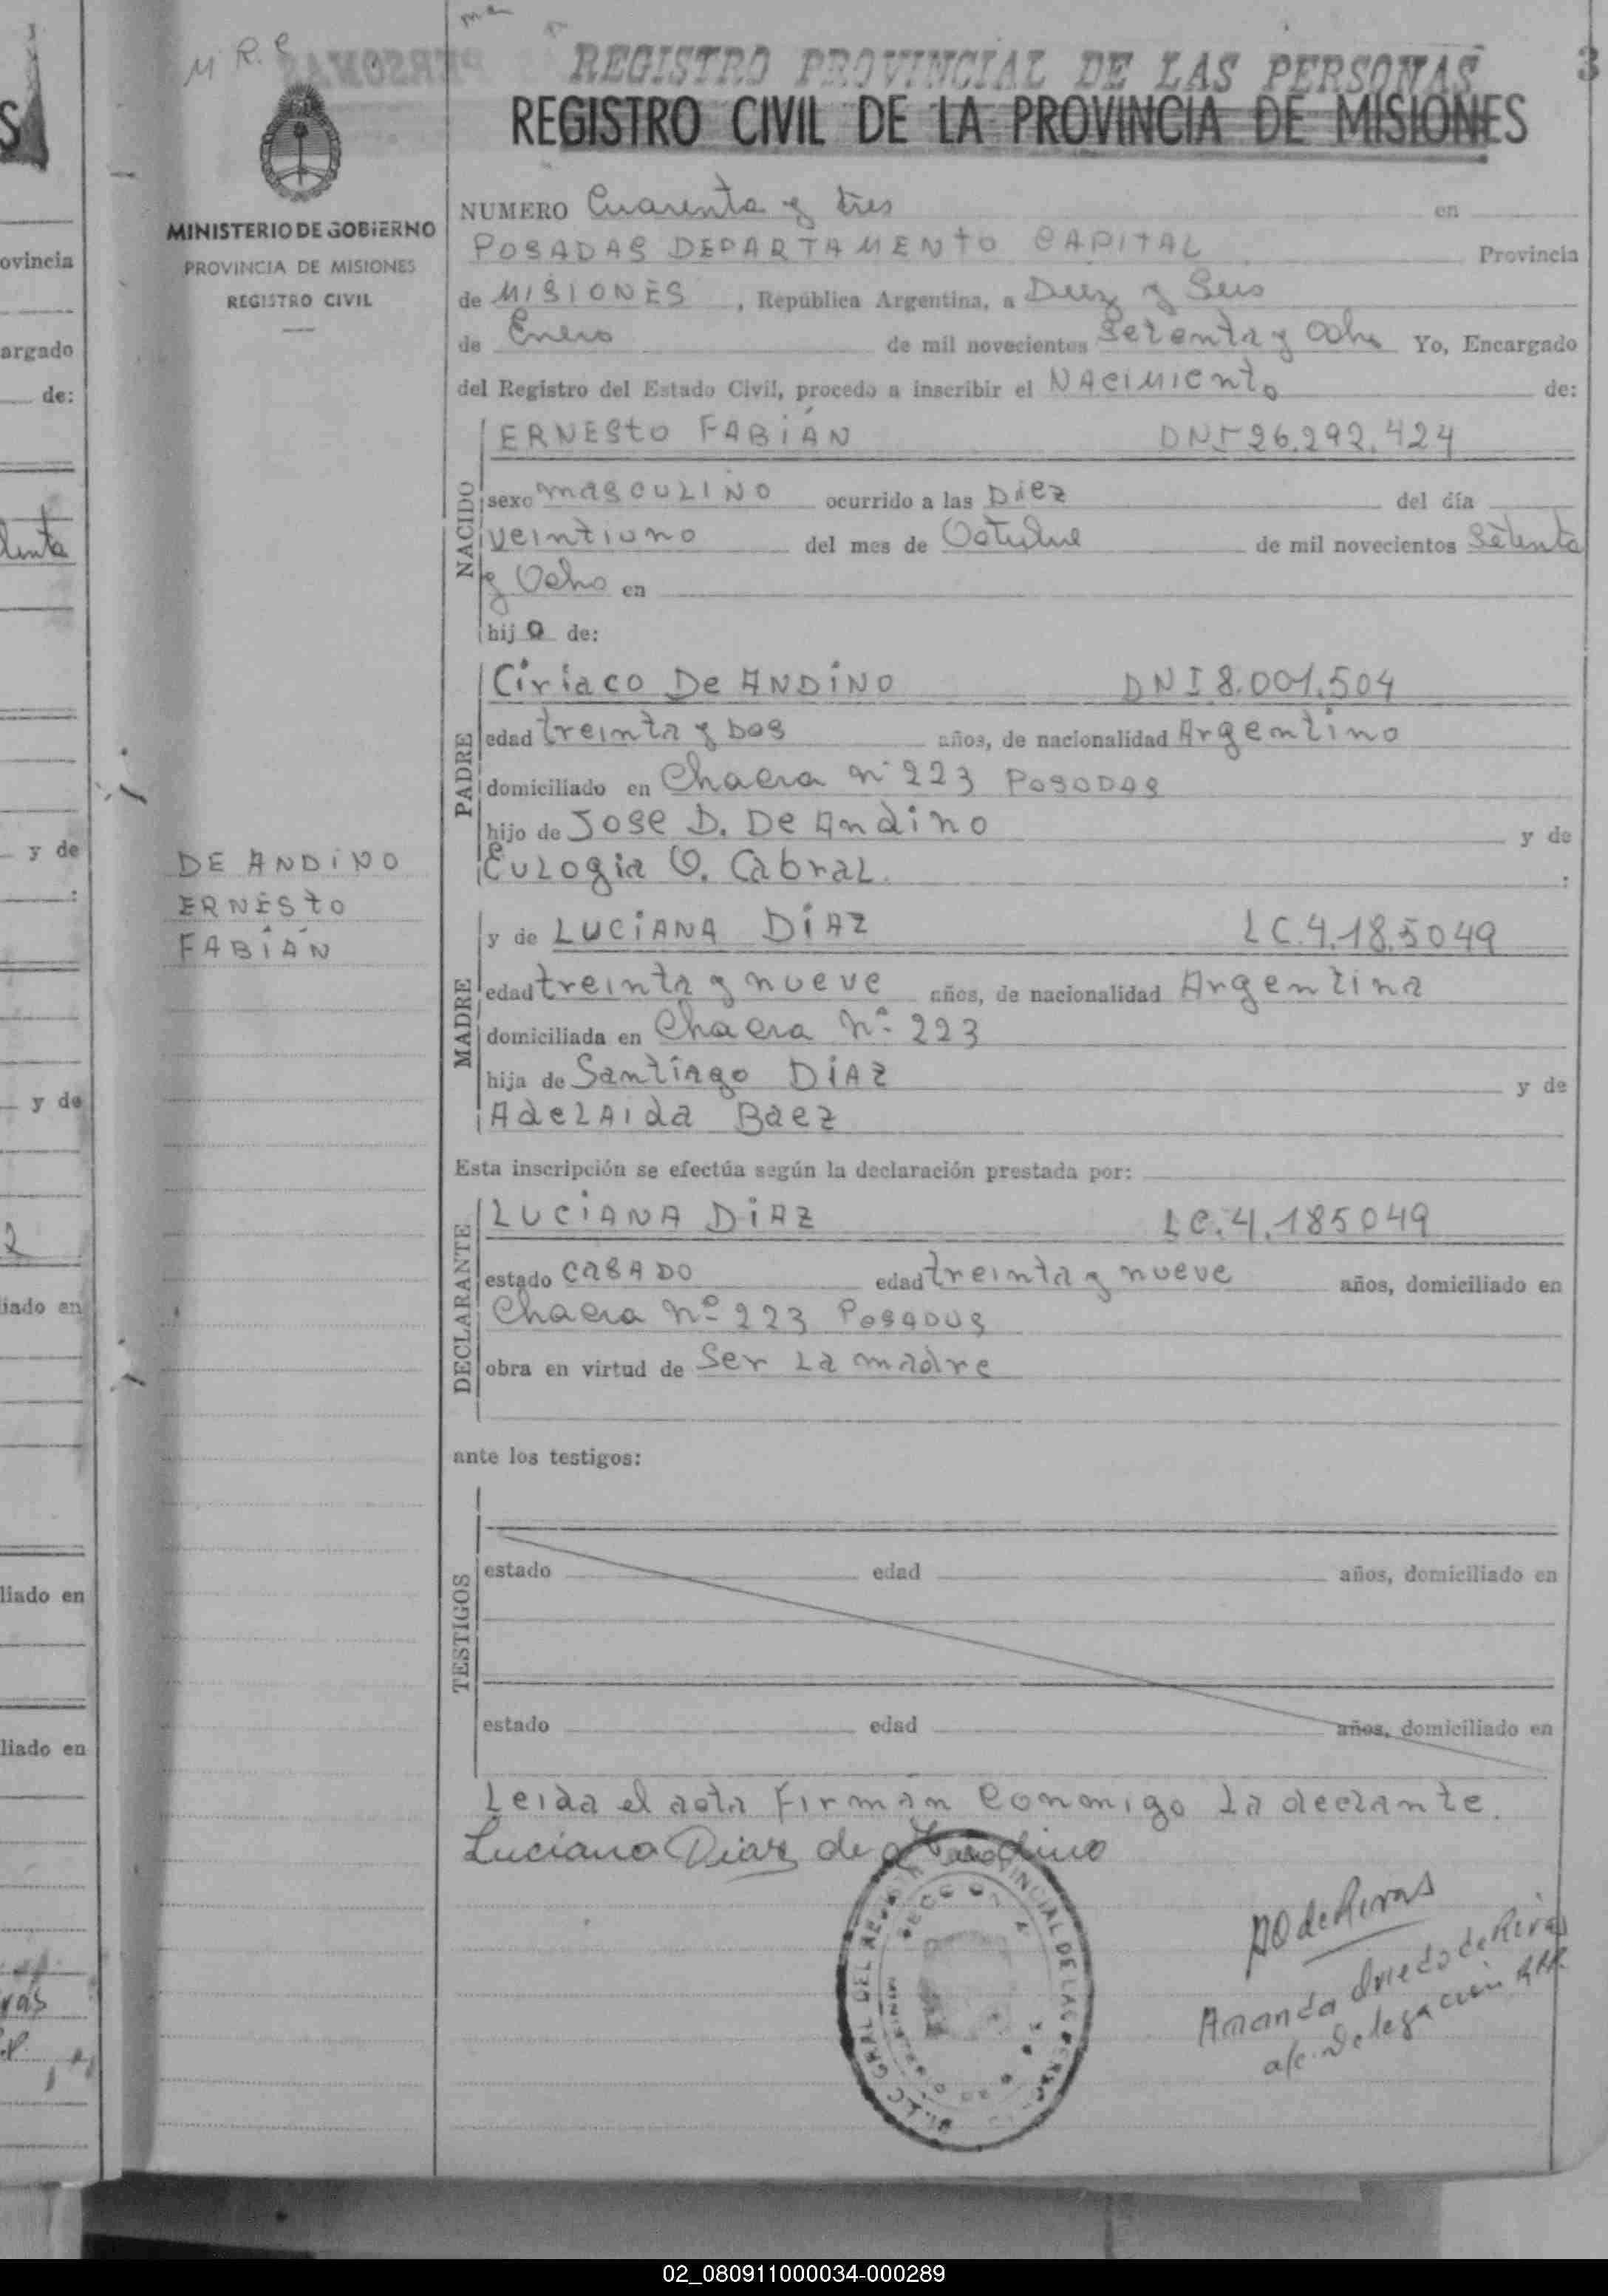 M R. C
REGISTRO PROVINCIAL DE LAS PERSONAS
REGISTRO CIVIL DE LA PROVINCIA DE MISIONES
3
MINISTERIO DE GOBIERNO
PROVINCIA DE MISIONES
REGISTRO CIVIL
NUMERO Cuarenta y tres en
POSADAS DEPARTAMENtO CAPITAL Provincia
de MISIONES, República Argentina, a Diez y Seis
de Enero de mil novecientos Setenta y Ocho Yo, Encargado
del Registro del Estado Civil, procedo a inscribir el NACIMIENTO de:
NACIDO
ERNESTO FABIÁN DNI 26.292.424
sexo MASCULINO ocurrido a las Diez del día
veintiuno del mes de Octubre de mil novecientos Setenta
y Ocho en
hijo de:
PADRE
Ciriaco De ANDINO DNI 8.001.504
edad treinta y Dos años, de nacionalidad Argentino
domiciliado en Chacra nº 223 POSODAS
hijo de Jose D. De Andino y de
Eulogia O. Cabral :
DE ANDINO
ERNESTO
FABIÁN
MADRE
y de LUCIANA DIAZ LC.4.18.5049
edad treinta y nueve años, de nacionalidad Argentina
domiciliada en Chacra Nº 223
hija de Santiago DIAZ y de
Adelaida Baez
Esta inscripción se efectúa según la declaración prestada por:
DECLARANTE
LUCIANA DIAZ LC.4.185049
estado CASADO edad treinta y nueve años, domiciliado en
Chacra Nº 223 Posadus
obra en virtud de Ser La madre
ante los testigos:
TESTIGOS
estado edad años, domiciliado en
estado edad años, domiciliado en
Leida el acta Firman Conmigo La declante.
Luciana Diaz de Andino
AO de Rivas
Amanda Oviedo de Rivas
a/c. Delegación
02_080911000034-000289